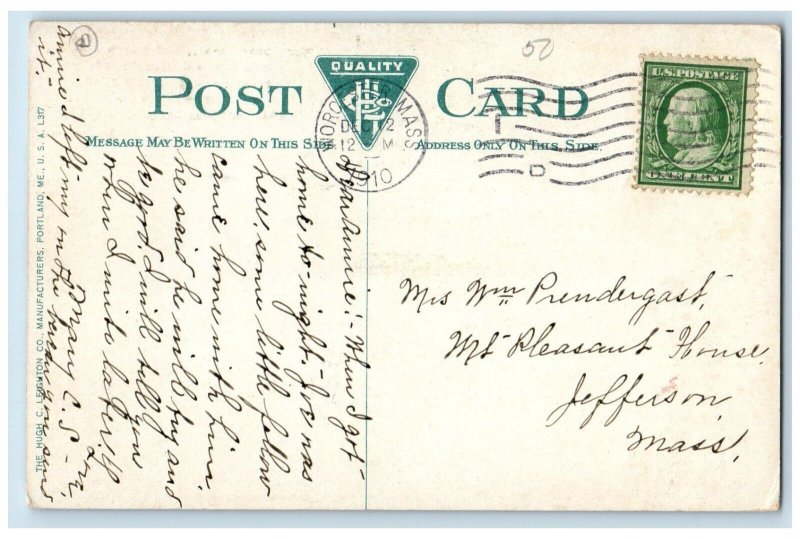 50
POST CARD
QUALITY
MESSAGE MAY BE WRITTEN ON THIS SIDE
ADDRESS ONLY ON THIS SIDE
WORCESTER MASS
DEC 12
12 M
1910
U.S. POSTAGE
Dear Annie:- When I got
home to-night - Joe was
here, some little fellow
came home with him.
he said he will try and
be good. I will tell you
when I write later.
Mary C. S-
on the
it.
Mrs Wm Prendergast,
Mt Pleasant House
Jefferson,
Mass.
THE HUGH C. LEIGHTON CO., MANUFACTURERS, PORTLAND, ME., U. S. A. L317